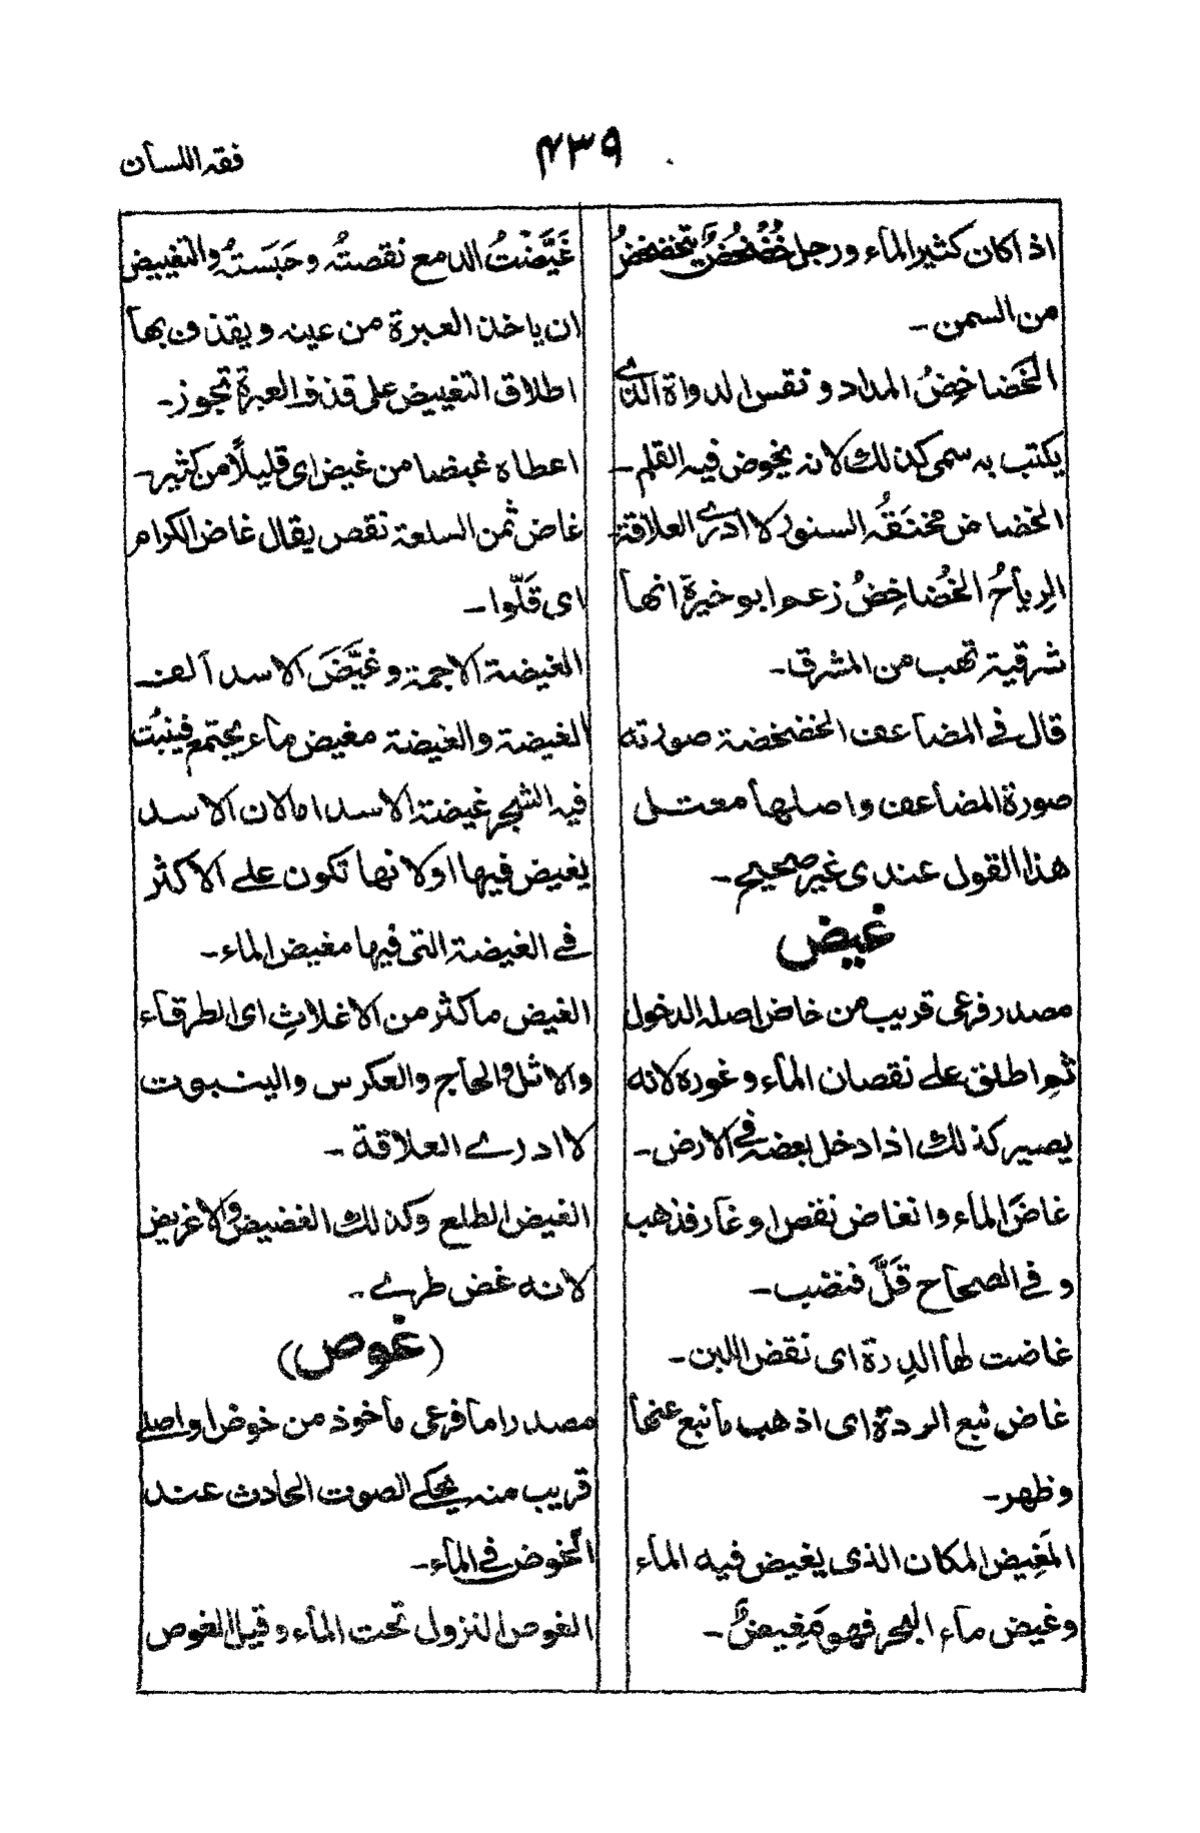 فقہ اللسان
۴۳۹
اذا كان كثير الماء ورجل خُضَخُضٌ يتخضخضُ
من السمن۔
الخَضاخِضُ المداد و نقس الدواة الذے
يكتب به سمى كذلك لانه يخوض فيه القلم۔
الخضاض مخنَقُه السنور لا ادرے العلاقة۔
الرياحُ الخُضاخِضُ زعم ابو خيرة انها
شرقية تهب من المشرق۔
قال فى المضاعف الخضخضة صورته
صورة المضاعف واصلها معتل
هذا القول عندى غير صحيح۔
غيض
مصدر فرعى قريب من خاض اصله الدخول
ثم اطلق على نقصان الماء وغوره لانه
يصير كذلك اذا دخل بعضه فى الارض۔
غاضَ الماء وانغاض نقص او غار فذهب
و فى الصحاح قَلَّ فنضب۔
غاضت لها الدرة اى نقض اللبن۔
غاض نبع الردة اى اذهب ما نبع عنها
وظهر۔
المَغِيض المكان الذى يغيض فيه الماء
وغيض ماء البحر فهو مَغِيضٌ۔
غَيَّضْتُ الدمع نقصتُه وحَبَستُه والتغييض
ان ياخذ العبرة من عينه ويقذف بها
اطلاق التغييض على قذف العبرة تجوز۔
اعطاه غيضا من غيض اى قليلًا من كثير۔
غاض ثمن السلعة نقص يقال غاض الكرام
اى قَلّوا۔
الغيضة الاجمة وغَيَّضَ الاسد آلف
الغيضة والغيضة مغيض ماء يجتمع فينبُت
فيه الشجر غيضة الاسد اما لان الاسد
يغيض فيها او لانها تكون على الاكثر
فے الغيضة التى فيها مغيض الماء۔
الغيض ما كثر من الاغلاثِ اى الطرفاء
والاثل والحاج والعكرس والينبوت
لا ادرے العلاقة۔
الغيض الطلع وكذلك الغضيض والاغريض
لانه غض طرے۔
(غوص)
مصدر اما فرعى ماخوذ من خوض او اصلے
قريب منه يحكے الصوت الحادث عند
الخوض فے الماء۔
الغوص النزول تحت الماء وقيل الغوص